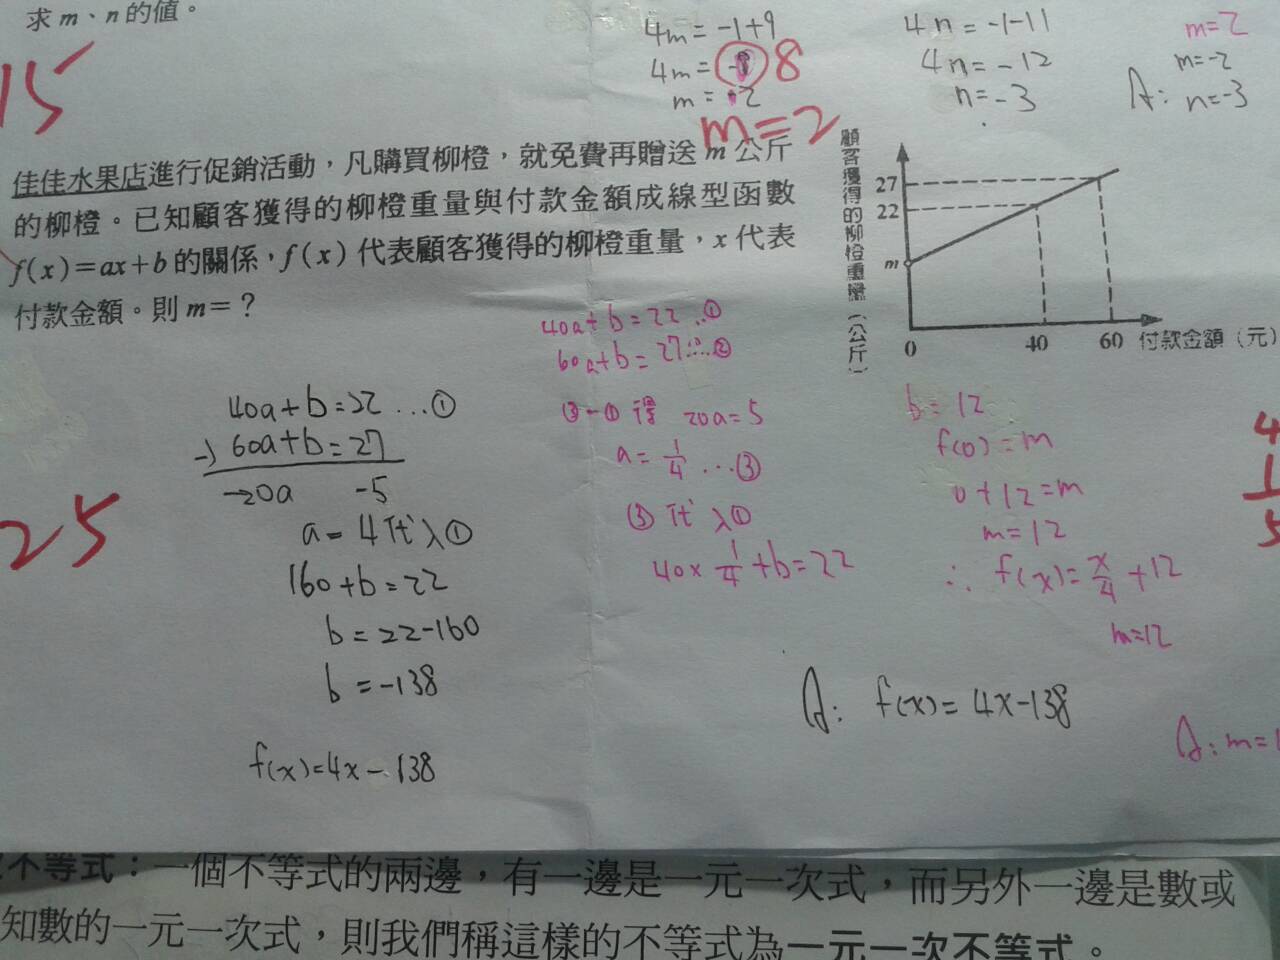 求 m、n 的值。
4m = -1+9
4m = 8
m = 2
m=2
4n = -1-11
4n = -12
n = -3
m=2
m=-2
A: n=-3
15
佳佳水果店進行促銷活動，凡購買柳橙，就免費再贈送 m 公斤
的柳橙。已知顧客獲得的柳橙重量與付款金額成線型函數
f(x)=ax+b 的關係，f(x) 代表顧客獲得的柳橙重量，x 代表
付款金額。則 m=？
顧客獲得的柳橙重量（公斤）
27
22
m
0 40 60 付款金額（元）
40a+b=22 …①
-) 60a+b=27
-20a -5
a=4代入①
160+b=22
b=22-160
b=-138
f(x)=4x-138
25
40a+b=22 …①
60a+b=27 …②
②-① 得 20a=5
a=1/4 …③
③代入①
40×1/4+b=22
b=12
f(0)=m
0+12=m
m=12
∴ f(x)=x/4+12
m=12
A: f(x)=4x-138
A: m=1
4
1
5
不等式：一個不等式的兩邊，有一邊是一元一次式，而另外一邊是數或
知數的一元一次式，則我們稱這樣的不等式為一元一次不等式。